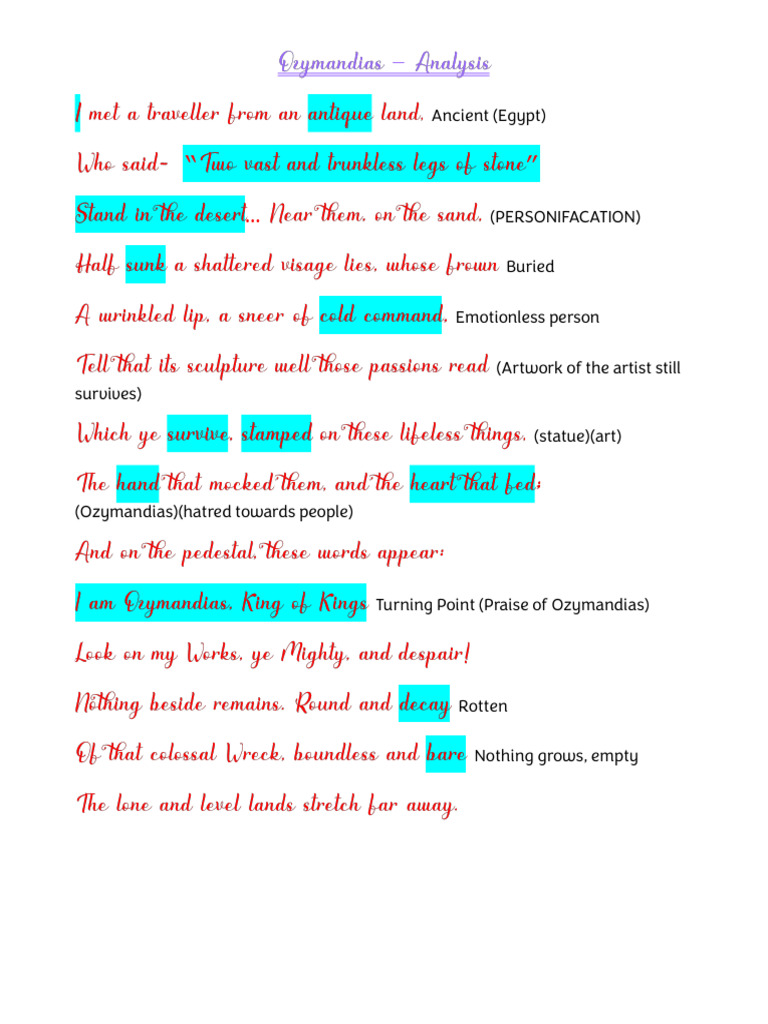 Ozymandias – Analysis
I met a traveller from an antique land, Ancient (Egypt)
Who said- “Two vast and trunkless legs of stone”
Stand in the desert... Near them, on the sand, (PERSONIFACATION)
Half sunk a shattered visage lies, whose frown Buried
A wrinkled lip, a sneer of cold command, Emotionless person
Tell that its sculpture well those passions read (Artwork of the artist still
survives)
Which ye survive, stamped on these lifeless things, (statue)(art)
The hand that mocked them, and the heart that fed;
(Ozymandias)(hatred towards people)
And on the pedestal, these words appear:
I am Ozymandias, King of Kings Turning Point (Praise of Ozymandias)
Look on my Works, ye Mighty, and despair!
Nothing beside remains. Round and decay Rotten
Of that colossal Wreck, boundless and bare Nothing grows, empty
The lone and level lands stretch far away.